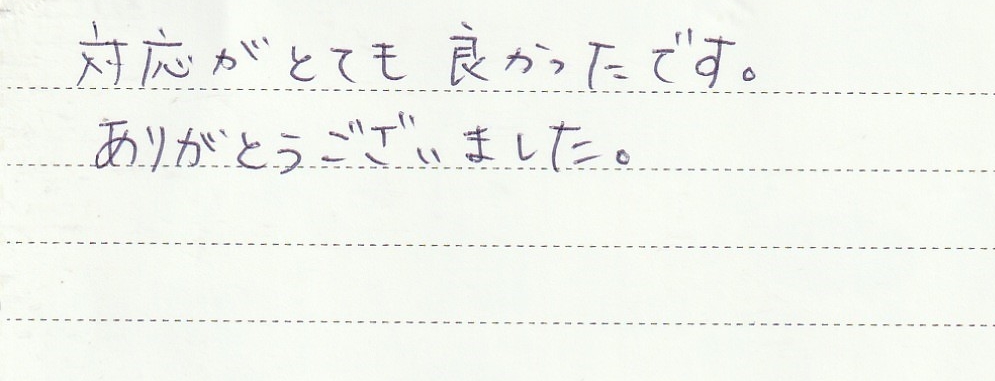 対応がとても良かったです。
ありがとうございました。